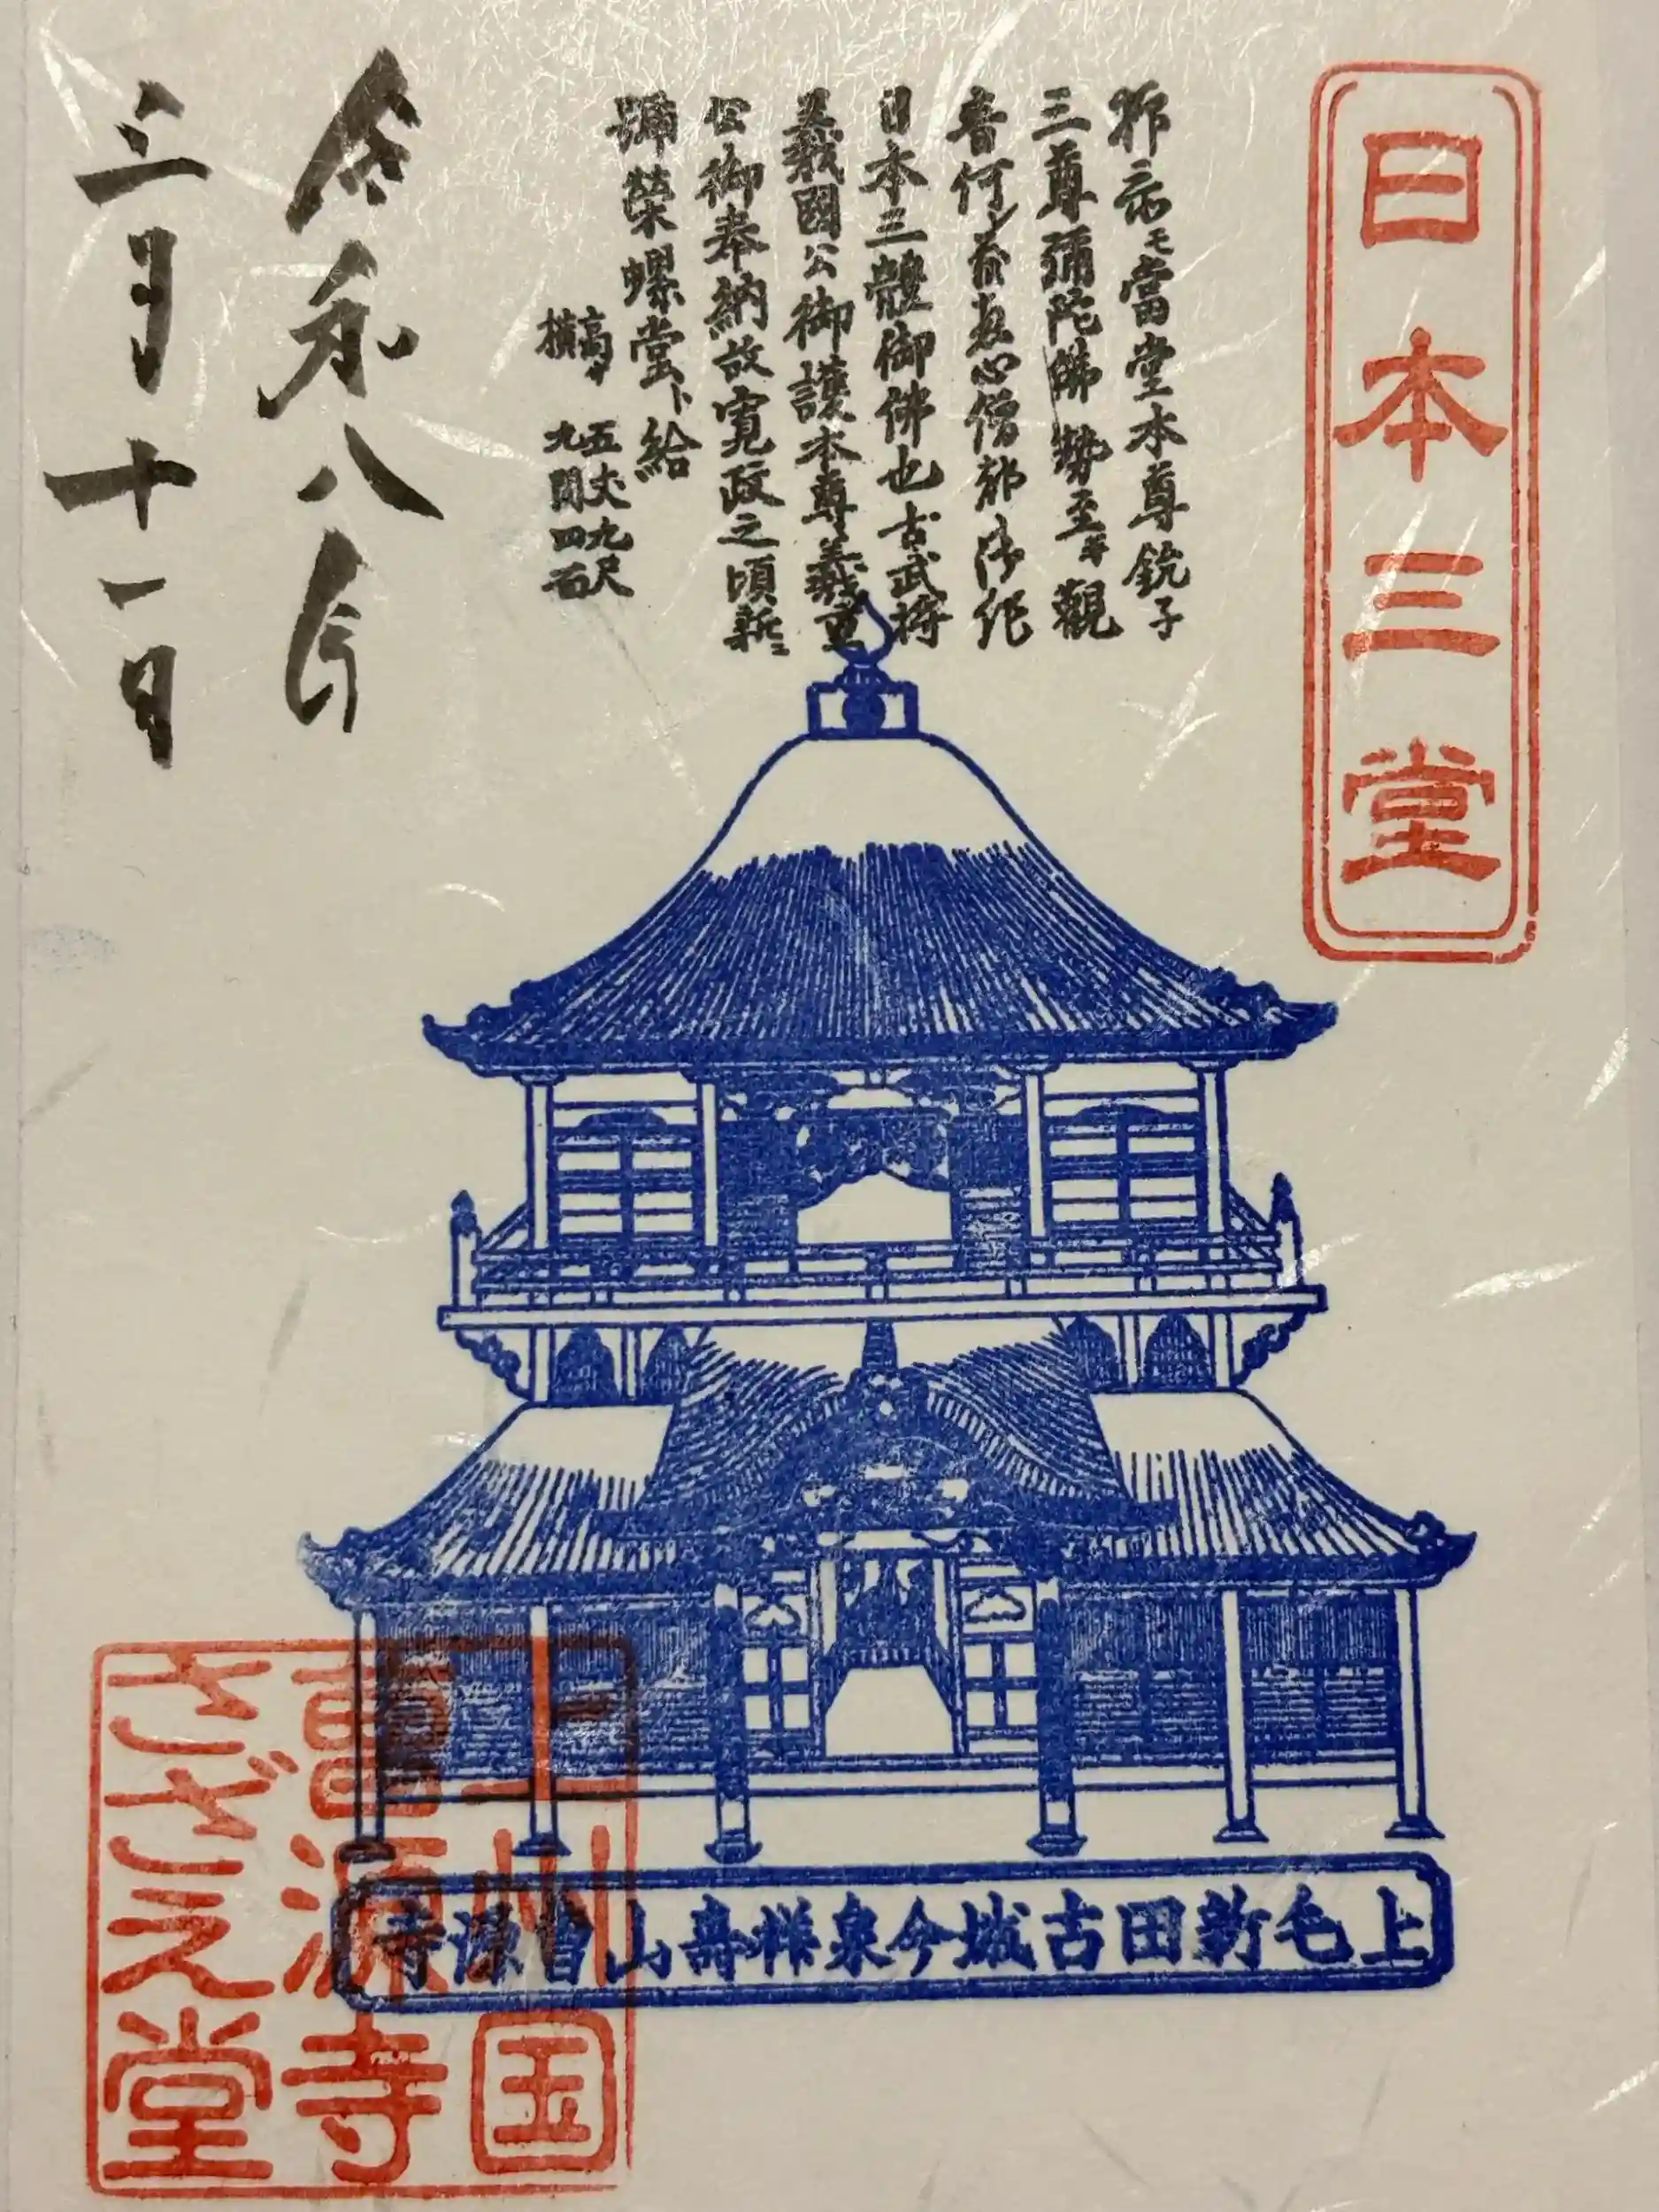 日本三堂
抑示モ當堂本尊銃子
三尊彌陀佛勢至観
音何レ茂恵心僧都御作
日本三體御佛也古武将
義國公御護本尊義重
公御奉納故寛政之頃新ニ
号榮螺堂ト給
高サ 五丈九尺
横 九間四面
令和八年
三月十一日
上毛新田古城今泉祥寿山曹源寺
上州国
曹源寺
さざえ堂